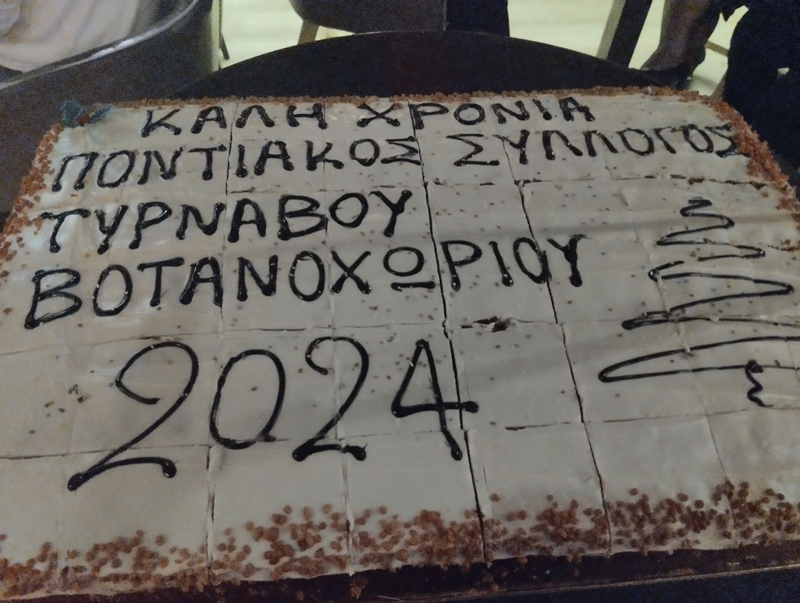 ΚΑΛΗ ΧΡΟΝΙΑ
ΠΟΝΤΙΑΚΟΣ ΣΥΛΛΟΓΟΣ
ΤΥΡΝΑΒΟΥ
ΒΟΤΑΝΟΧΩΡΙΟΥ
2024